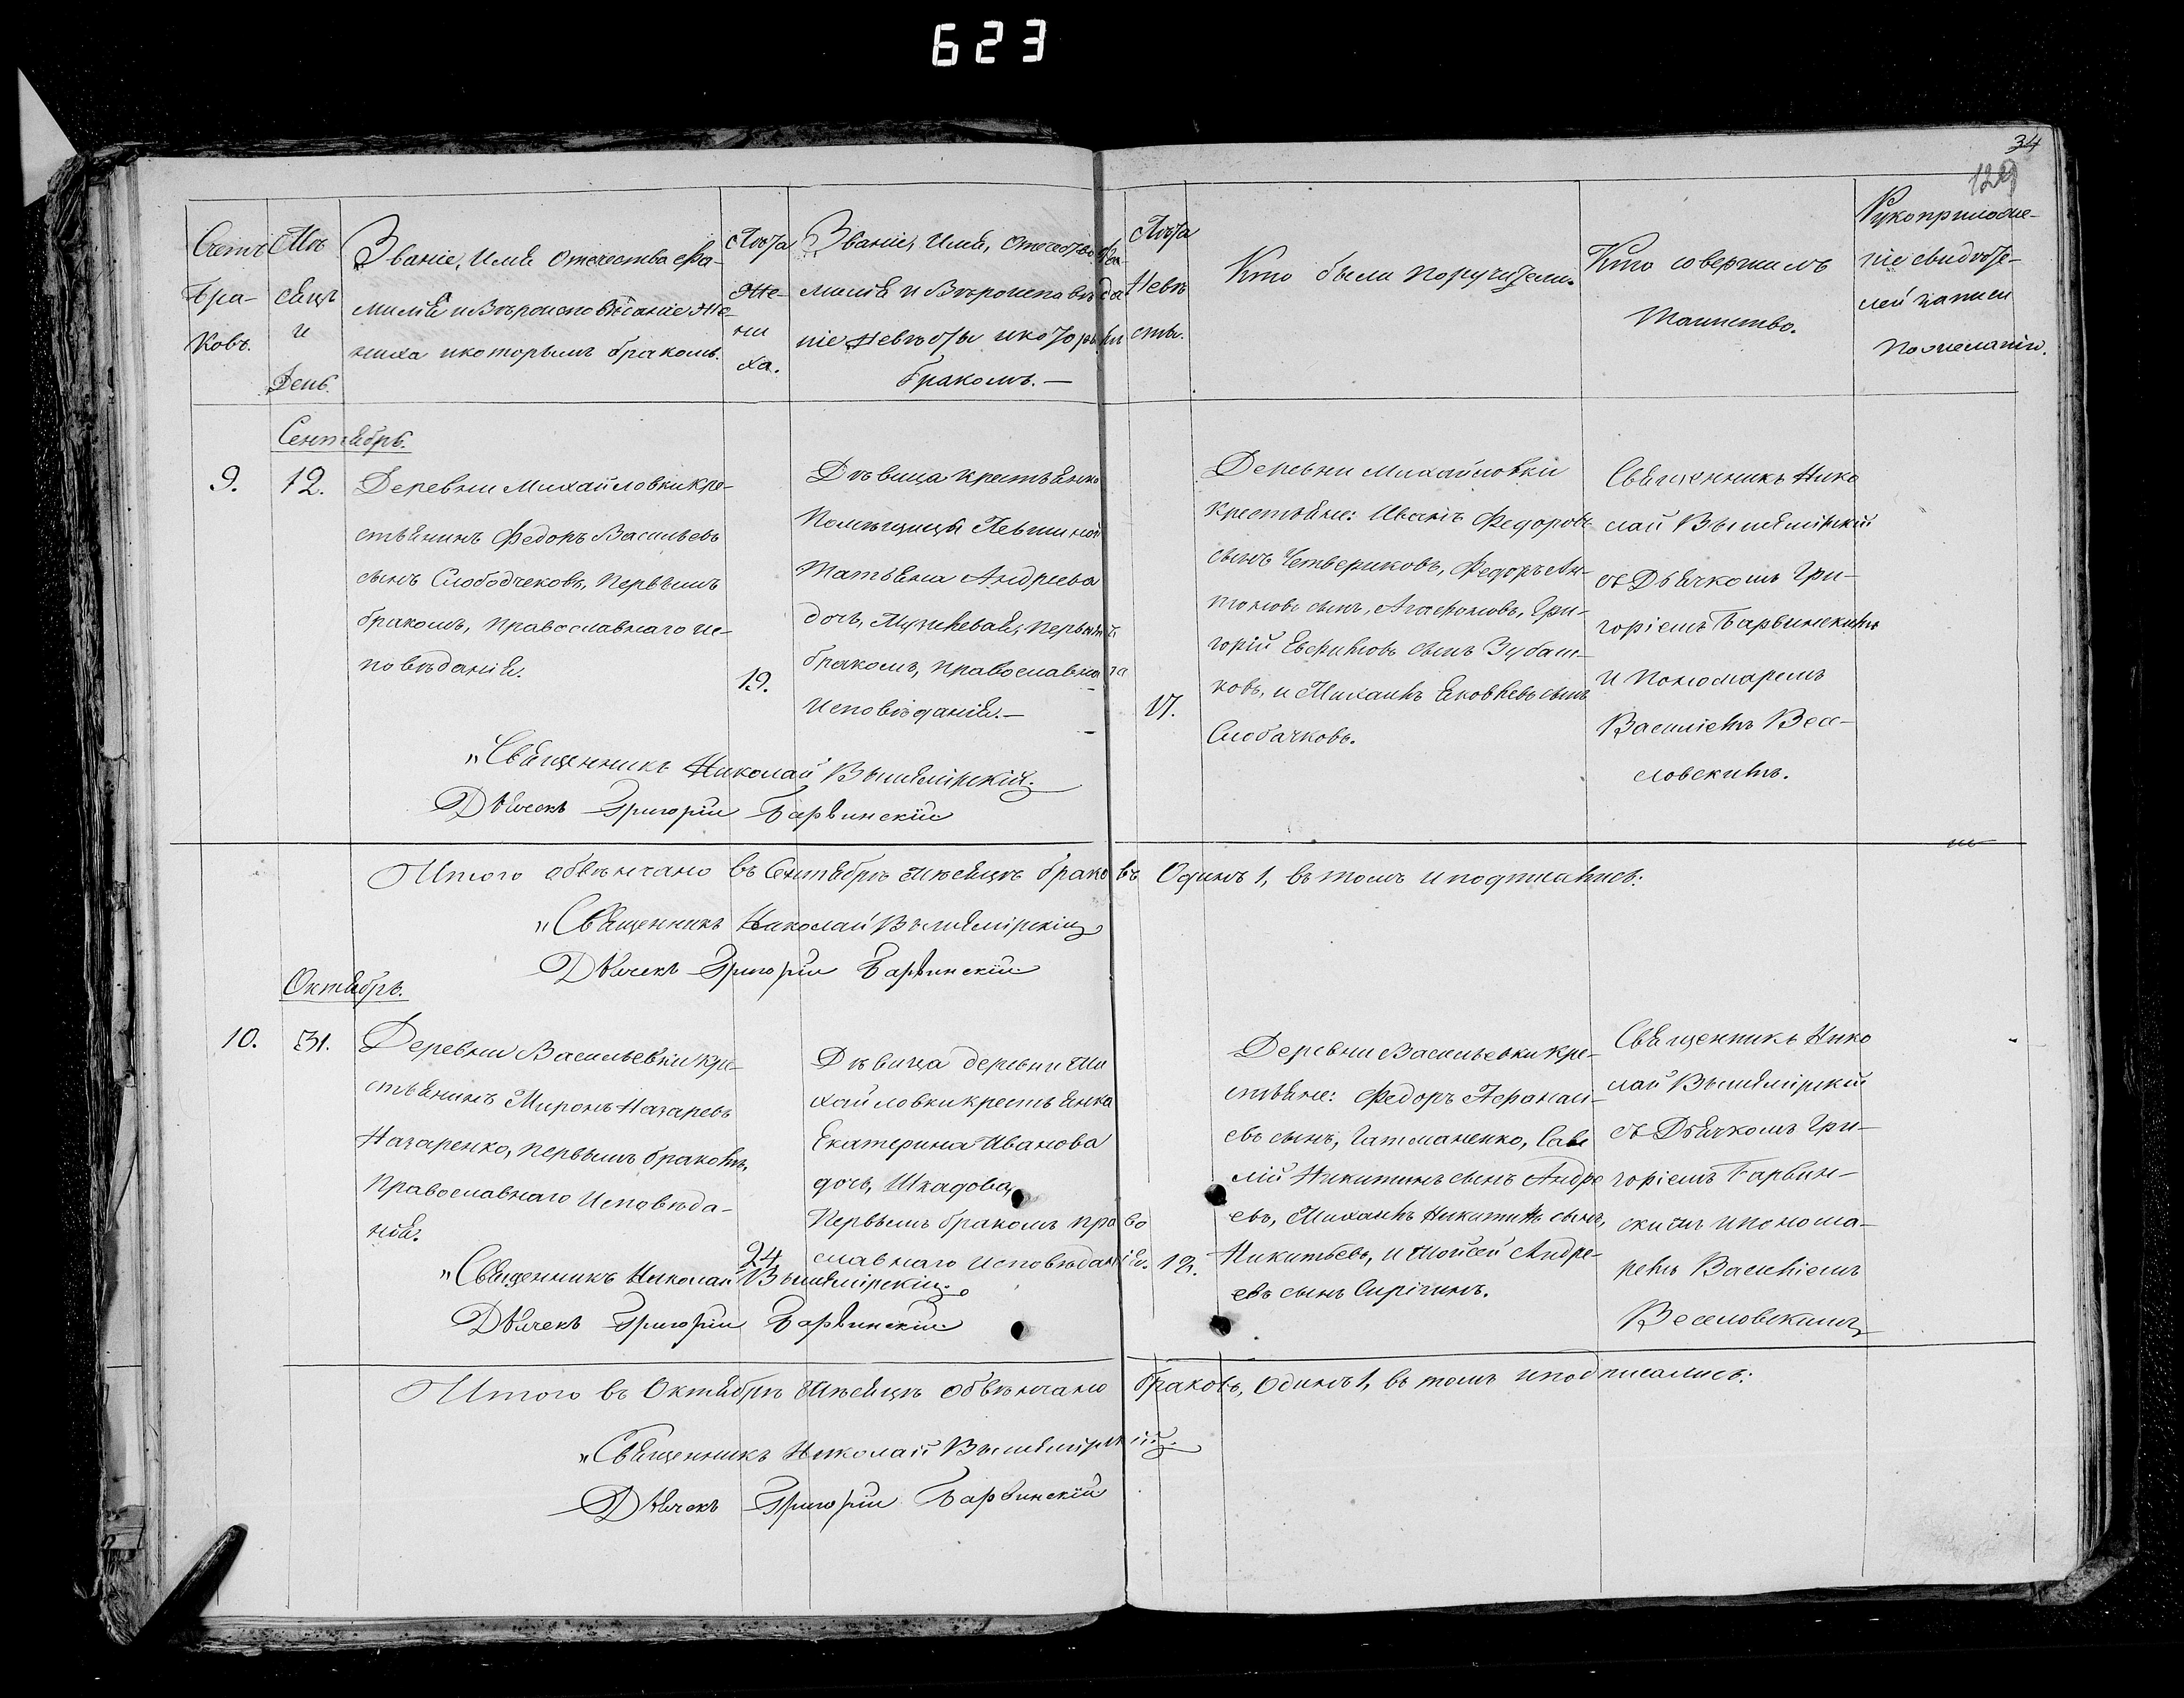 623
34
129
Счетъ
Бра-
ковъ.
Мѣ
сяцъ
и
День.
Званіе, Имя Отечество Фа-
милія и Вѣроисповѣданіе Же-
ниха и которымъ бракомъ.
Лѣта
Же-
ни
ха.
Званіе, Имя, Отечество Фа-
милія и Вѣроисповѣда
ніе Невѣсты и которымъ
бракомъ. —
Лѣта
Невѣ
сты.
Кто были поручители.
Кто совершилъ
Таинство.
Рукоприложе-
ніе свидѣте-
лей записи
по желанію.
Сентябрь.
9.
12.
Деревни Михайловки кре-
стьянинъ Федоръ Васильевъ
сынъ Слободчековъ, первымъ
бракомъ, православнаго ис-
повѣданія.
19.
Дѣвица крестьянка
Помѣщицы Левшиной
Татьяна Андреева
дочь, первымъ
бракомъ, православнаго
исповѣданія. —
17.
Деревни Михайловки
крестьяне: Иванъ Федоровъ
сынъ Четвериковъ, Федоръ Ан-
тоновъ сынъ, Агафоновъ, Гри-
горій Евфимовъ сынъ Зубаш-
ковъ, и Михаилъ Яковлевъ сынъ
Слобачковъ.
Священникъ Нико
лай Вышемірскій
съ Дьячкомъ Гри-
горіемъ Барвинскимъ
и Пономаремъ
Василіемъ Весе-
ловскимъ.
„Священникъ Николай Вышемірскій.
Дьячекъ Григорій Барвинскій
Итого обвѣнчано въ Сентябрѣ мѣсяцѣ браковъ Одинъ 1, въ томъ и подписались:
„Священникъ Николай Вышемірскій
Дьячекъ Григорій Барвинскій
Октябрь.
10.
31.
Деревни Васильевки кре-
стьянинъ Миронъ Назаревъ
Назаренко, первымъ бракомъ,
Православнаго Исповѣда-
нія.
24
Дѣвица деревни Ми
хайловки крестьянка
Екатерина Иванова
дочь, Шкадова,
Первымъ бракомъ право
славнаго исповѣданія.
19.
Деревни Васильевки кре-
стьяне: Федоръ Афанась-
евъ сынъ, Гатманенко, Саве
лій Никитинъ сынъ Андре
евъ, Михаилъ Никитинъ сынъ,
Никитьевъ, и Мойсей Андре-
евъ сынъ Сирѣгинъ.
Священникъ Нико
лай Вышемірскій
съ Дьячкомъ Гри-
горіемъ Барвин-
скимъ и понома-
ремъ Василіемъ
Веселовскимъ
„Священникъ Николай Вышемірскій.
Дьячекъ Григорій Барвинскій
Итого въ Октябрѣ мѣсяцѣ обвѣнчано браковъ, Одинъ 1, въ томъ и подписались:
„Священникъ Николай Вышемірскій.
Дьячекъ Григорій Барвинскій